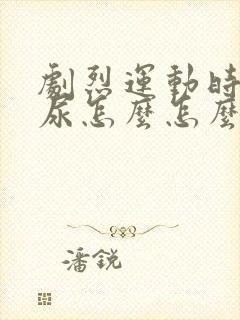 劇烈運動時
尿怎麼怎麼
潘銳